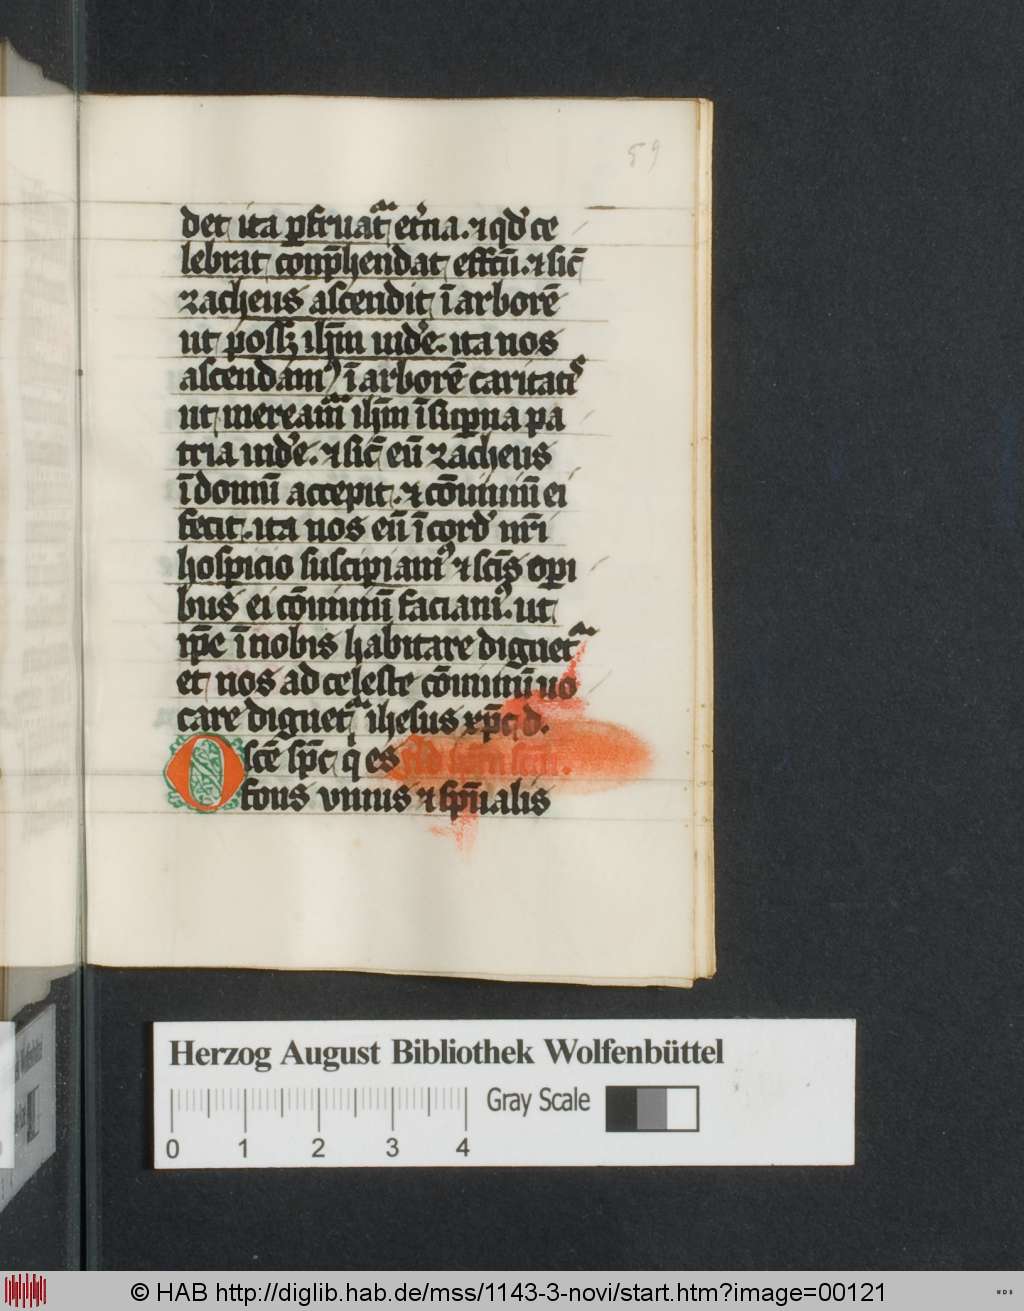 59
det ita ꝑfruat᷑ et̓na. ⁊ qd̓ ce
lebrat conp̄hendat effctū. ⁊ sic̄
zacheus ascendit ī arborē
ut possꝫ ih̄m uid̓e. ita nos
ascendamꝰ ī arborē caritatꝭ
ut meream᷑ ih̄m ī suꝑna pa
tria uid̓e. ⁊ sic̄ eū zacheus
ī domū accepit. ⁊ cōuiuiū ei
fecit. ita nos eū ī cord̓ nr̄i
hospicio suscipiamꝰ ⁊ sc̄is oꝑi
bus ei cōuiuiū faciamꝰ. ut
ip̄e ī nobis habitare dignet᷑
et nos ad celeste cōuiuiū uo
care dignet᷑ ihesus xp̄c d.
O sc̄e sp̄c qͥ es
fons viuus ⁊ sp̄ualis
Herzog August Bibliothek Wolfenbüttel
Gray Scale
0 1 2 3 4
© HAB http://diglib.hab.de/mss/1143-3-novi/start.htm?image=00121